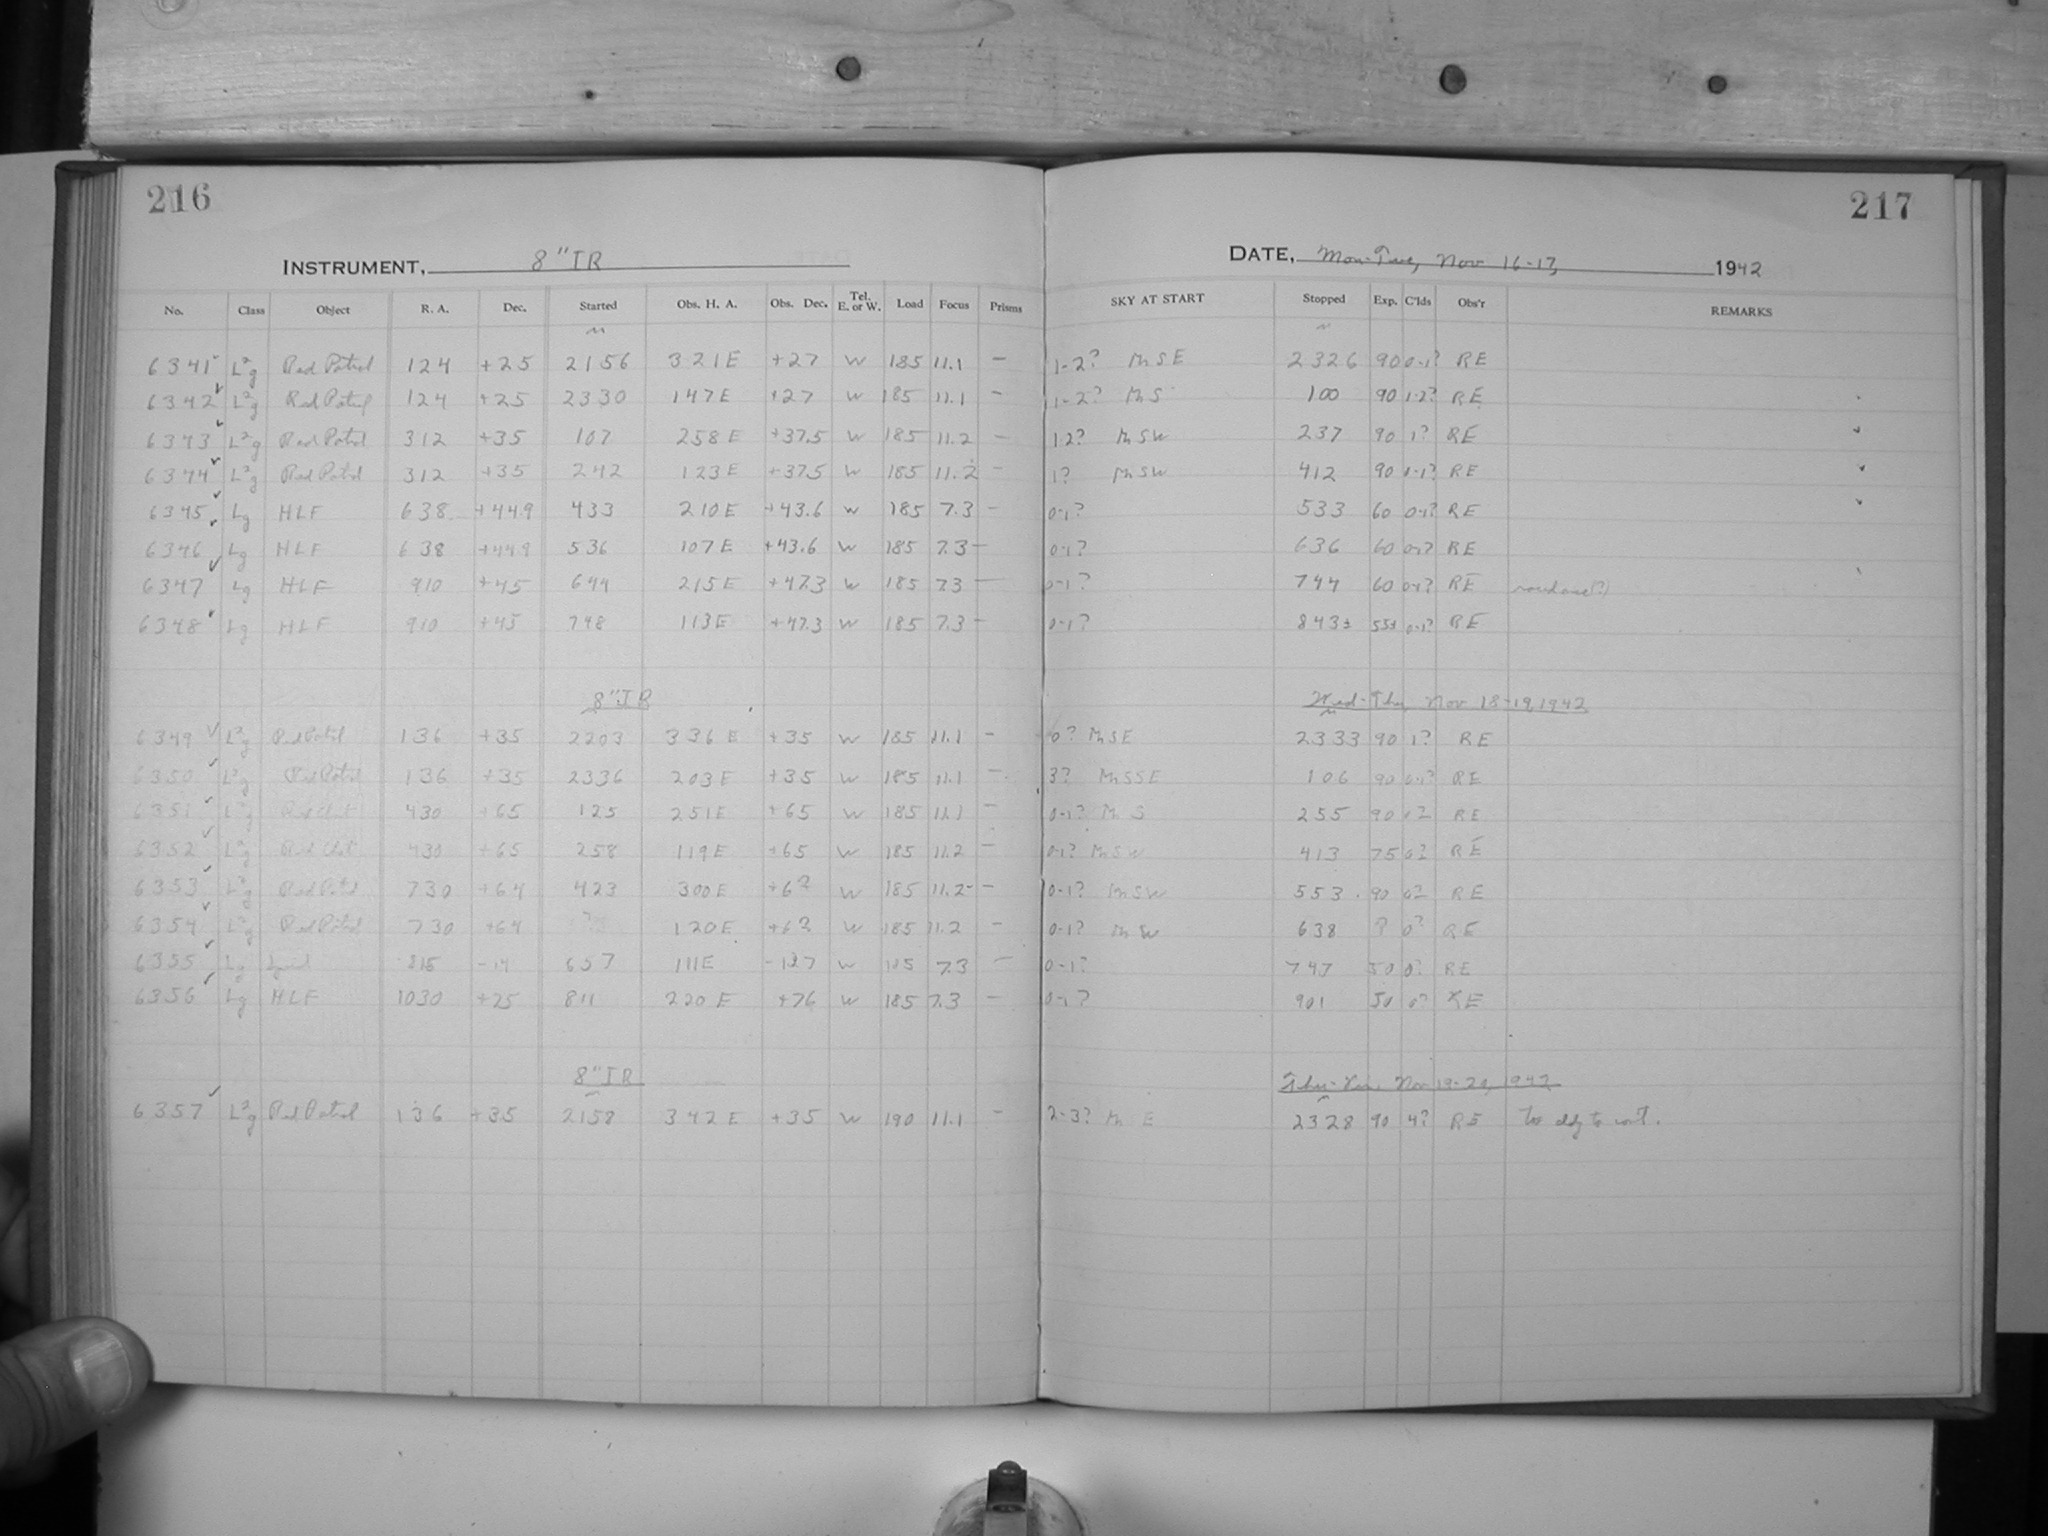 216
217
INSTRUMENT, 8" IR
DATE, Mon-Tue, Nov 16-17, 1942
No. Class Object R. A. Dec. Started Obs. H. A. Obs. Dec. Tel. E. or W. Load Focus Prisms SKY AT START Stopped Exp. C'lds Obs'r REMARKS
6341 L²g Red Patrol 124 +25 2156 321E +27 W 185 11.1 — 1-2? M SE 2326 90 0-1? RE
6342 L²g Red Patrol 124 +25 2330 147E +27 W 185 11.1 — 1-2? M S 100 90 1-2? RE
6343 L²g Red Patrol 312 +35 107 258E +37.5 W 185 11.2 — 1-2? M SW 237 90 1? RE
6344 L²g Red Patrol 312 +35 242 123E +37.5 W 185 11.2 — 1? M SW 412 90 0-1? RE
6345 Lg HLF 638 +44.9 433 210E +43.6 W 185 7.3 — 0-1? 533 60 0-1? RE
6346 Lg HLF 638 +44.9 536 107E +43.6 W 185 7.3 — 0-1? 636 60 0-1? RE
6347 Lg HLF 910 +45 644 215E +47.3 W 185 7.3 — 0-1? 744 60 0-1? RE
6348 Lg HLF 910 +45 748 113E +47.3 W 185 7.3 — 0-1? 843± 55± 0-1? RE
8" IR Wed-Thu, Nov 18-19, 1942
6349 L²g Red Patrol 136 +35 2203 336E +35 W 185 11.1 — 0? M SE 2333 90 1? RE
6350 L²g Red Patrol 136 +35 2336 203E +35 W 185 11.1 — 3? M SSE 106 90 0-1? RE
6351 L²g 430 +65 125 251E +65 W 185 11.1 — 0-1? M S 255 90 RE
6352 L²g 430 +65 258 119E +65 W 185 11.2 — 0-1? M SW 413 75 0? RE
6353 L²g Red Patrol 730 +64 423 300E W 185 11.2 — 0-1? M SW 553 90 0? RE
6354 L²g Red Patrol 730 +64 ? 120E W 185 11.2 — 0-1? M W 638 ? 0? RE
6355 Lg 815 -14 657 111E W 185 7.3 — 0-1? 747 50 0? RE
6356 Lg HLF 1030 +25 811 220E +26 W 185 7.3 — 0-1? 901 50 0? RE
8" IR Thu-Fri, Nov 19-20, 1942
6357 L²g Red Patrol 136 +35 2158 342E +35 W 190 11.1 — 2-3? M E 2328 90 4? RE Too cldy to cont.